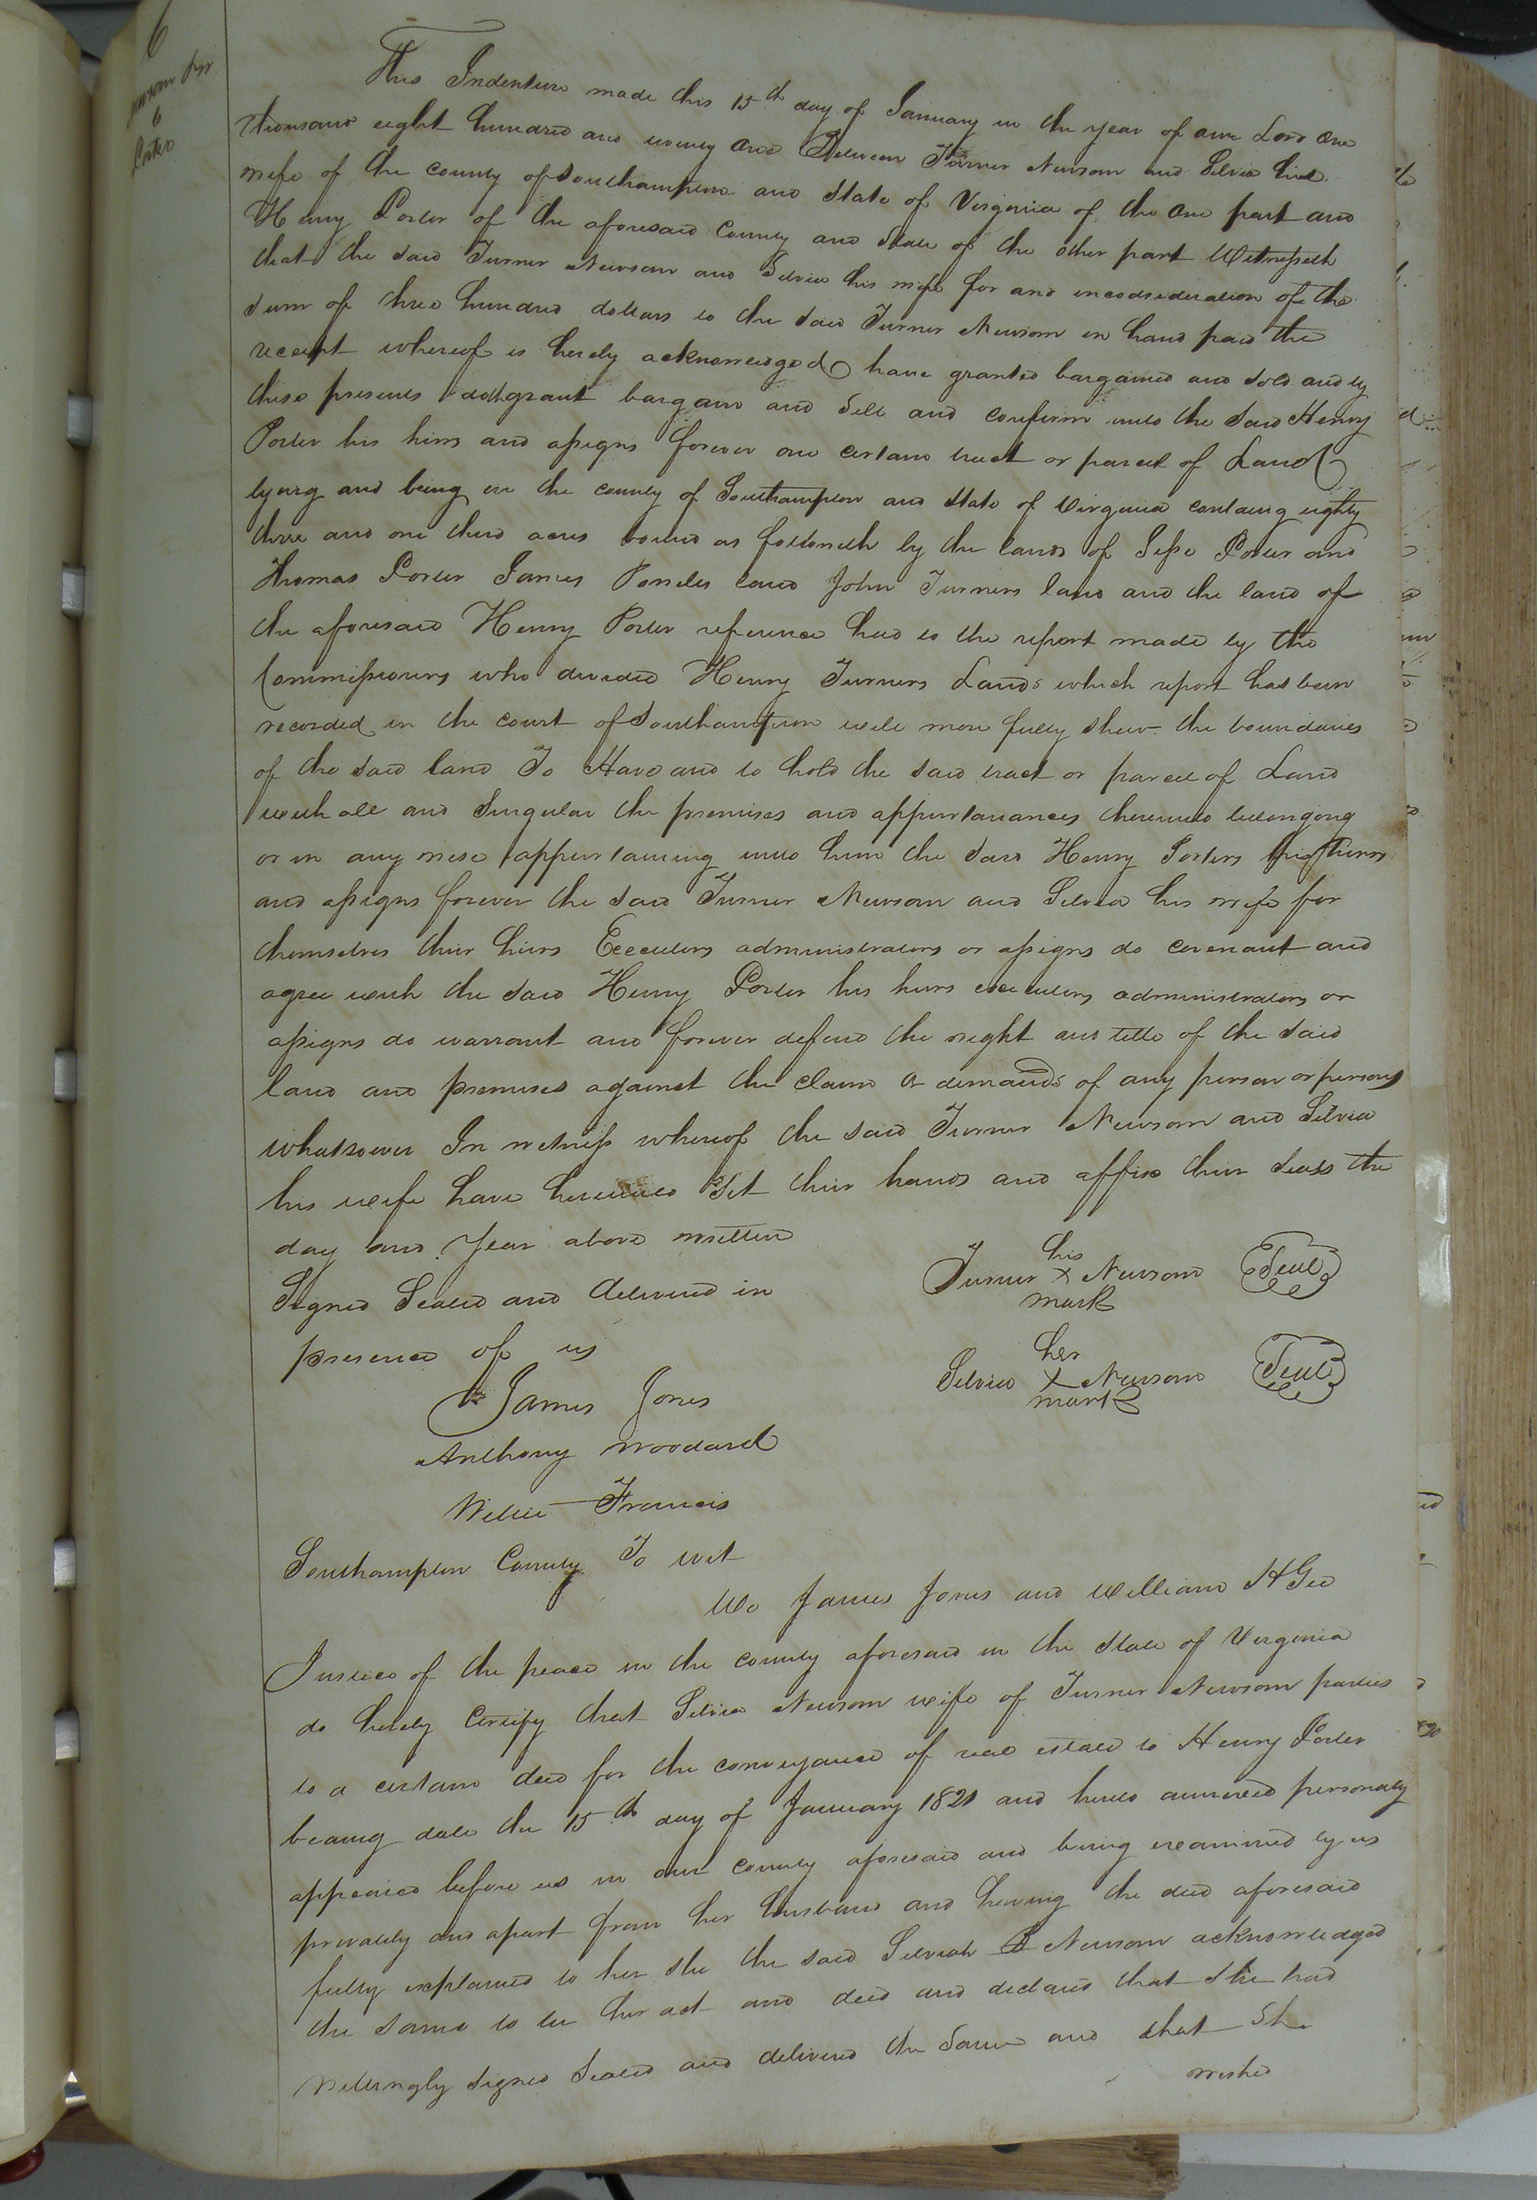 6
Newsom &c
to
Porter
This Indenture made this 15th day of January in the year of our Lord one
thousand eight hundred and twenty one Between Turner Newsom and Silvia his
wife of the county of Southampton and State of Virginia of the one part and
Henry Porter of the aforesaid County and State of the other part Witnesseth
that the said Turner Newsom and Silvia his wife for and inconsideration of the
sum of three hundred dollars to the said Turner Newsom in hand paid the
receipt whereof is hereby acknowledged have granted bargained and sold and by
these presents doth grant bargain and sell and confirm unto the said Henry
Porter his hirs and assigns forever one certain tract or parcel of Land
lying and being in the county of Southampton and State of Virginia containg eighty
three and one third acres bound as followeth by the lands of Jesse Porter and
Thomas Porter James land John Turners land and the land of
the aforesaid Henry Porter reference had to the report made by the
Commissioners who divided Henry Turners Lands which report has been
recorded in the court of Southampton will more fully shew the boundaries
of the said land To Have and to hold the said tract or parcel of Land
with all and Singular the premises and appurtanances thereunto belonging
or in any wise appurtaining unto him the said Henry Porters his hirs
and assigns forever the said Turner Newsom and Silvia his wife for
themselves thir hiirs Executors administrators or assigns do covenant and
agree with the said Henry Porter his heirs executors administrators or
assigns do warrant and forever defend the right and title of the said
land and premises against the claim or demands of any person or persons
whatsoever In witness whereof the said Turner Newsom and Silvia
his wife have hereunto Set thir hands and affix thir seals the
day and year above written
Signed Sealed and delivered in
presence of us
his
Turner X Newsom Seal
mark
her
Silvia X Newsom Seal
mark
James Jones
Anthony Woodard
Willie Francis
Southampton County To wit
We James Jones and William H Gee
Justice of the peace in the county aforesaid in the State of Virginia
do hereby Certify that Silvia Newsom wife of Turner Newsom parties
to a certain deed for the conveyance of real estate to Henry Porter
bearing date the 15th day of January 1821 and hereto annexed personally
appeared before us in our county aforesaid and being examined by us
privately and apart from her husband and having the deed aforesaid
fully explained to her she the said Silviah Newsom acknowledged
the same to be her act and deed and declared that she had
willingly signed Sealed and delivered the Same and that She
wished